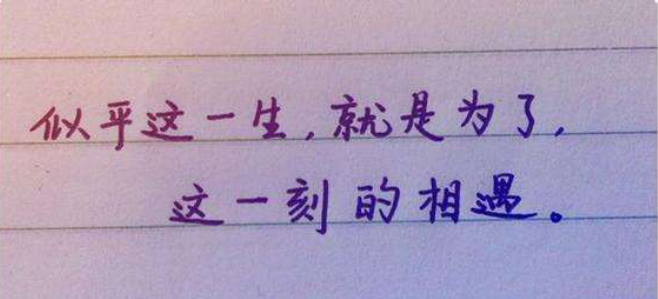 似乎这一生,就是为了,
这一刻的相遇。